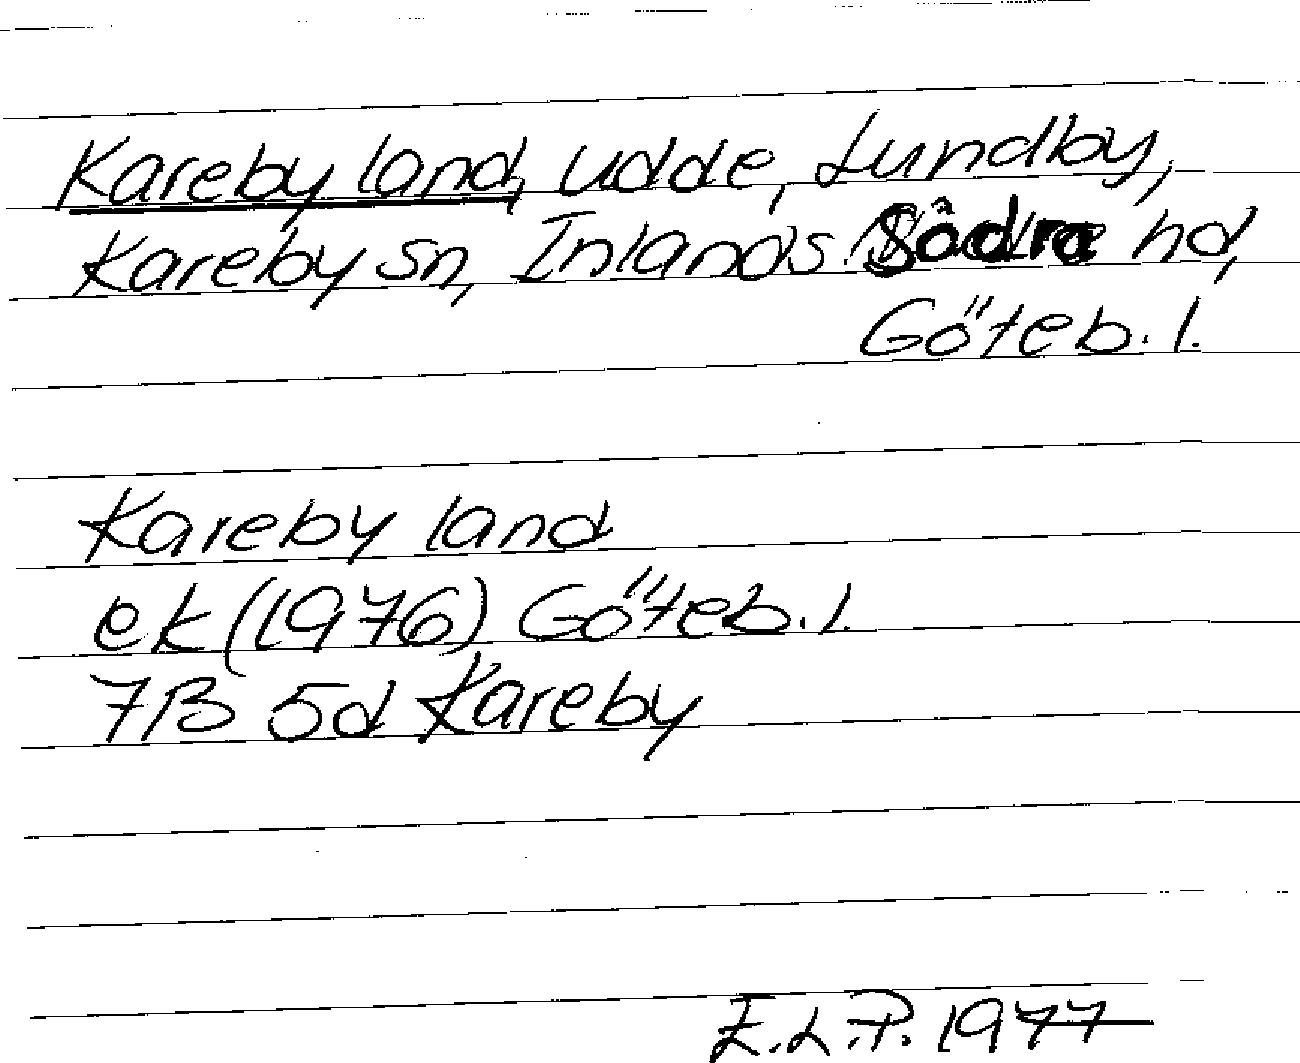 Kareby land, udde, Lundby,
Kareby sn, Inlands Södra hd,
Göteb. l.
Kareby land
ek (1976) Göteb. l.
7B 5d Kareby
E.L.P. 1977